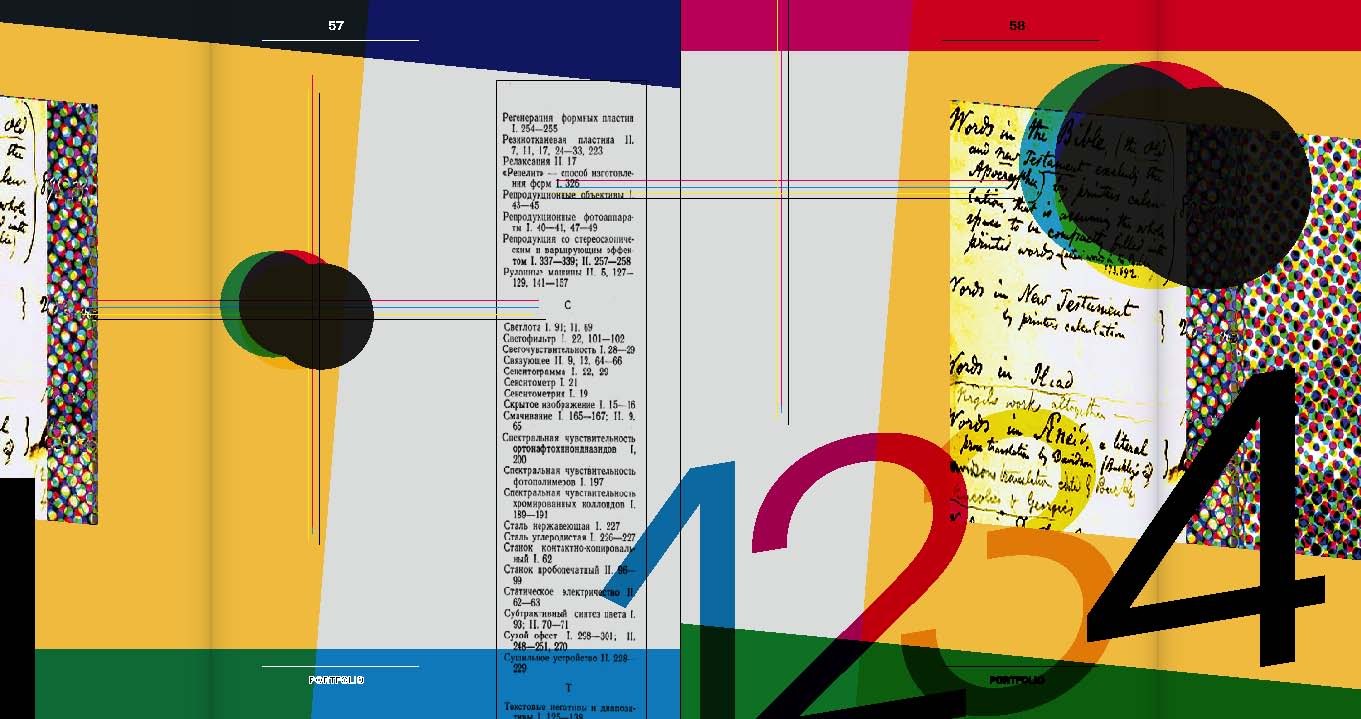 57
old)
the
whole
into
Регенерация формных пластин
I. 254—255
Резинотканевая пластина II.
7, 11, 17, 24—33, 223
Релаксация II. 17
«Резелит» — способ изготовле-
ния форм I. 326
Репродукционные объективы I.
43—45
Репродукционные фотоаппара-
ты I. 40—41, 47—49
Репродукция со стереоскопиче-
ским и варьирующим эффек-
том I. 337—339; II. 257—258
Рулонные машины II. 5, 127—
129, 141—157
С
Светлота I. 91; II. 69
Светофильтр I. 22, 101—102
Светочувствительность I. 28—29
Связующее II. 9, 12, 64—66
Сенситограмма I. 22, 29
Сенситометр I. 21
Сенситометрия I. 19
Скрытое изображение I. 15—16
Смачивание I. 165—167; II. 9,
65
Спектральная чувствительность
ортонафтохинондиазидов I,
200
Спектральная чувствительность
фотополимезов I. 197
Спектральная чувствительность
хромированных коллоидов I.
189—191
Сталь нержавеющая I. 227
Сталь углеродистая I. 226—227
Станок контактно-копироваль-
ный I. 62
Станок пробопечатный II. 96—
99
Статическое электричество II.
62—63
Субтрактивный синтез цвета I.
93; II. 70—71
Сухой офсет I. 298—301; II,
248—251, 270
Сушильное устройство II. 228—
229
Т
Текстовые негативы и диапози-
тивы I. 125—138
PORTFOLIO
58
Words in the Bible (the old
and new Testament excluding the
Apocrypha) by printers calcu-
lation, that is assuming the whole
space to be compactly filled into
printed words
Words in New Testament
by printers calculation
Words in Iliad
Virgils works altogether
Words in Æneid, a literal
prose translation by Davidson (Buckley Ed)
Davidson translation edited by Buckley
Bucolics & Georgics
1 2 3 4
PORTFOLIO